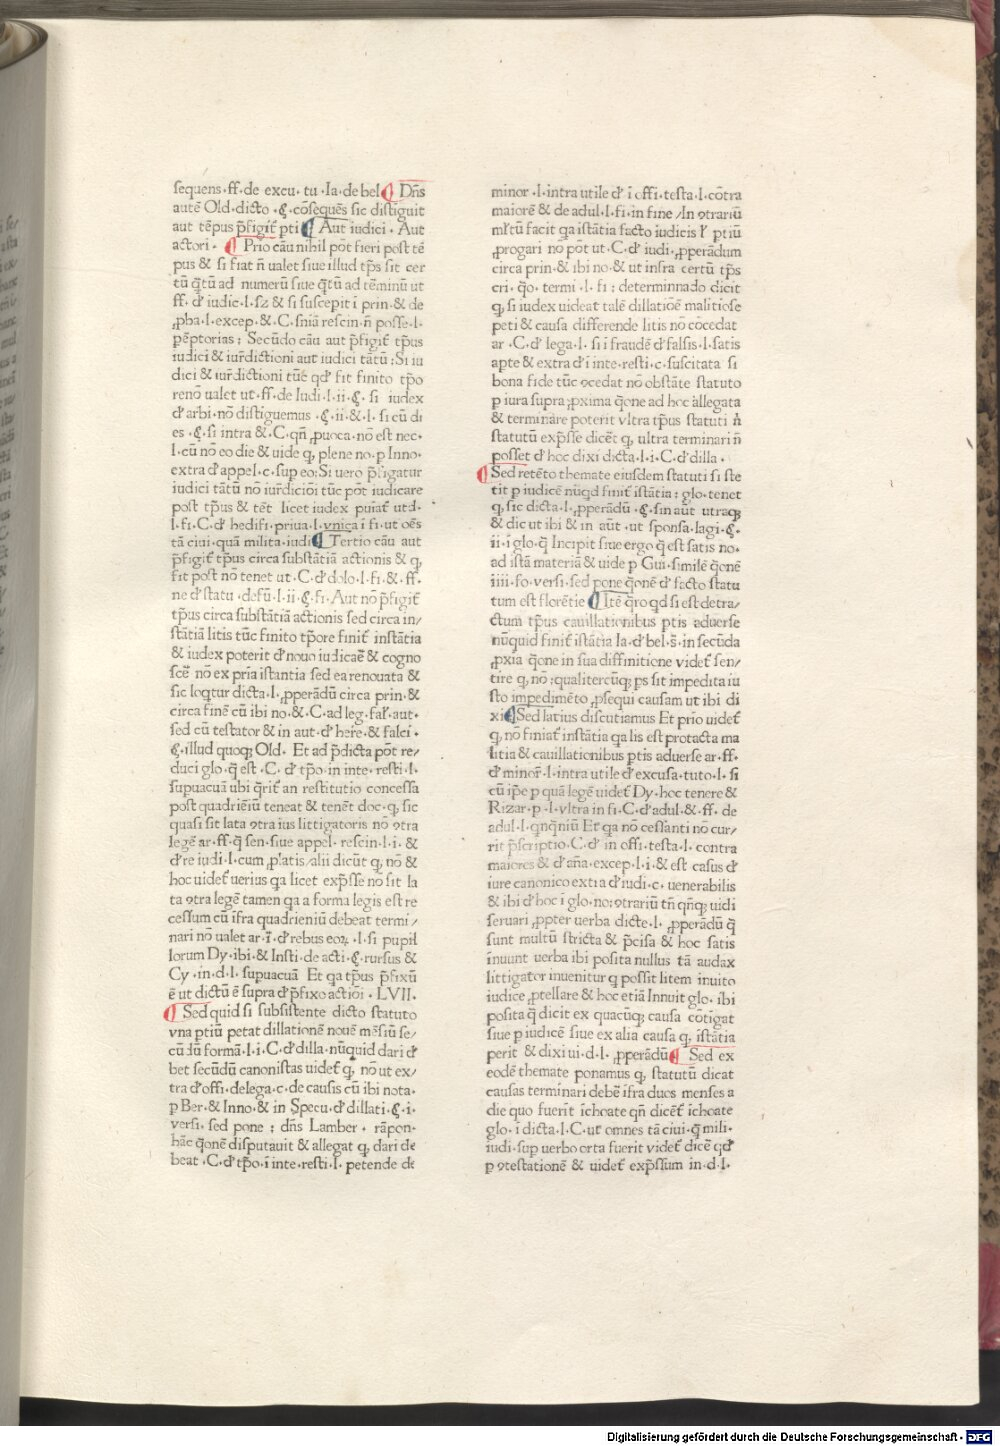 sequens · ff · de excu · tu · Ia · de bel ¶ Dñs
autē Old · dicto · §̨ · cōsequēs sic distiguit
aut tēpus p̄figit̄ pti ¶ Aut iudici · Aut
actori · ¶ Prio cāu nihil pōt fieri post tē
pus & si fiat n̄ ualet siue illud tp̄s sit cer
tū q̄tū ad numerū siue q̄tū ad tēminū ut
ff · đ iudic · l · sz & si suscepit i prin · & de
ꝓba · l · excep · & · C · sn̄iā rescin · n̄ posse · l ·
pēptorias : Secūdo cāu aut p̄figit̄ tp̄us
iudici & iur̄dictioni aut iudici tātū : Si iu
dici & iur̄dictioni tūc qđ fit finito tp̄o
renō ualet ut · ff · de Iudi · l · ii · §̨ · si iudex
đ arbi · nō distiguemus · §̨ · ii · & · l · si cū di
es · §̨ · si intra & · C · qn̄ ꝓuoca · nō est nec ·
l · cū nō eo die & uide q̨ plene no · p Inno ·
extra đ appel · c · sup eo : Si uero p̄figatur
iudici tātū nō iur̄dicioi tūc pōt iudicare
post tp̄us & tēt licet iudex puiat̄ ut d ·
l · fi · C · đ hedifi · priua · l · vnica i fi · ut oēs
tā ciui · quā milita · iudi ¶ Tertio cāu aut
p̄figit̄ tp̄us circa substātiā actionis & q̨
fit post nō tenet ut · C · đ dolo · l · fi · & · ff ·
ne đ statu · defū · l · ii · §̨ · fi · Aut nō p̄figit̄
tp̄us circa substātiā actionis sed circa in/
stātiā litis tūc finito tp̄ore finit̄ instātia
& iudex poterit đ nouo iudicaē & cogno
scē nō ex pria istantia sed ea renouata &
sic loqtur dicta · l · ꝓperādū circa prin · &
circa finē cū ibi no · & · C · ad leg · fal̄ · aut ·
sed cū testator & in aut · đ here · & falci ·
§̨ · illud quoq; Old · Et ad p̄dicta pōt re/
duci glo · q̄ est · C · đ tp̄o · in inte · resti · l ·
supuacuā ubi q̄rit̄ an restitutio concessa
post quadriēiū teneat & tenēt doc · q̨ sic
quasi sit lata ɔtra ius littigatoris nō ɔtra
legē ar · ff · q̄ sen · siue appel · rescin · l · i · &
đ re iudi · l · cum ꝓlatis/alii dicūt q̨ nō &
hoc uidet̄ uerius qa licet exp̄sse nō sit la
ta ɔtra legē tamen qa a forma legis est re
cessum cū ifra quadrieniū debeat termi/
nari nō ualet ar · ī · đ rebus eoꝝ · l · si pupil
lorum Dy · ibi · & Insti · de acti · §̨ · rursus &
Cy · in · d · l · supuacuā Et qa tp̄us p̄fixū
ē ut dictū ē supra đ p̄fixo actiōi · LVII ·
¶ Sed quid si subsistente dicto statuto
vna ptiū petat dillationē nouē mēsiū se/
cūdū formā · l · i · C · đ dilla · nūquid dari đ
bet secūdū canonistas uidet̄ q̨ nō ut ex/
tra đ offi · delega · c · de causis cū ibi nota ·
p Ber · & Inno · & in Specu · đ dillati · §̨ · i ·
versi · sed pone : dn̄s Lamber · rāpon ·
hāc q̄onē disputauit & allegat q̨ dari de
beat · C · đ tp̄o · i inte · resti · l · petende đ
minor · l · intra utile đ i offi · testa · l · cōtra
maiorē & de adul · l · fi · in fine / In ɔtrariū
ml̄tū facit qa istātia facto iudicis l̄ ptiū
ꝓrogari nō pōt ut · C · đ iudi · ꝓperādum
circa prin · & ibi no · & ut infra certū tp̄s
cri · q̄o · termi · l · fi : determinnado dicit
q̨ si iudex uideat talē dillatiōē malitiose
peti & causa differende litis nō cōcedat
ar · C · đ lega · l · si i fraudē đ falsis · l · satis
apte & extra đ i inte · resti · c · suscitata si
bona fide tūc ɔcedat nō obstāte statuto
p iura supra ꝓxima q̄one ad hoc allegata
& terminare poterit vltra tp̄us statuti n̄
statutū exp̄sse dicēt q̨ ultra terminari n̄
posset đ hoc dixi dicta · l · i · C · đ dilla ·
¶ Sed retēto themate eiusdem statuti si ste
tit p iudicē nūqd finit̄ istātia : glo · tenet
q̨ sic dicta · l · ꝓperādū · §̨ · sin aūt utraq;
& dic ut ibi & in aūt · ut sponsa · lagi · §̨ ·
ii · i glo · q̄ Incipit siue ergo q̄ est satis no ·
ad istā materiā & uide p Gui · similē q̄onē
iiii · fo · versi · sed pone q̄onē đ facto statu
tum est florētie ¶ Itē q̄ro qd si est detra/
ctum tp̄us cauillationibus ptis aduerse
nūquid finit̄ istātia Ia · đ bel · s̄ · in secūda
ꝓxia q̄one in sua diffinitione videt̄ sen/
tire q̨ nō : qualitercūq; ps sit impedita iu
sto impedimēto ꝓsequi causam ut ibi di
xi ¶ Sed latius discutiamus Et prio uidet̄
q̨ nō finiat̄ instātia qa lis est protacta ma
litia & cauillationibus ptis aduerse ar · ff ·
đ minor̄ · l · intra utile đ excusa · tuto · l · si
cū ip̄e p quā legē uidet̄ Dy · hoc tenere &
Rizar · p · l · vltra in fi · C · đ adul · & · ff · de
adul · l · qnq̄niū Et qa nō cessanti nō cur/
rit p̄scriptio · C · đ in offi · testa · l · contra
maiores & đ an̄a · excep · l · i · & est casus đ
iure canonico extra đ iudi · c · uenerabilis
& ibi đ hoc i glo · no : ɔtrariū tn̄ qn̄q; uidi
seruari ꝓpter uerba dicte · l · ꝓperādū q̄
sunt multū stricta & p̄cisa & hoc satis
inuunt uerba ibi posita nullus tā audax
littigator inuenitur q possit litem inuito
iudice ꝓtellare & hoc etiā Innuit glo · ibi
posita q̄ dicit ex quacūq; causa cōtigat
siue p iudicē siue ex alia causa q̨ istātia
perit & dixi ui · d · l · ꝓperādū ¶ Sed ex
eodē themate ponamus q̨ statutū dicat
causas terminari debē ifra duos menses a
die quo fuerit ichoate qn̄ dicēt̄ ichoate
glo · i dicta · l · C · ut omnes tā ciui · q̄ mili ·
iudi · sup uerbo orta fuerit videt̄ dicē qđ
p ɔtestationē & uidet̄ exp̄ssum in · d · l ·
Digitalisierung gefördert durch die Deutsche Forschungsgemeinschaft - DFG